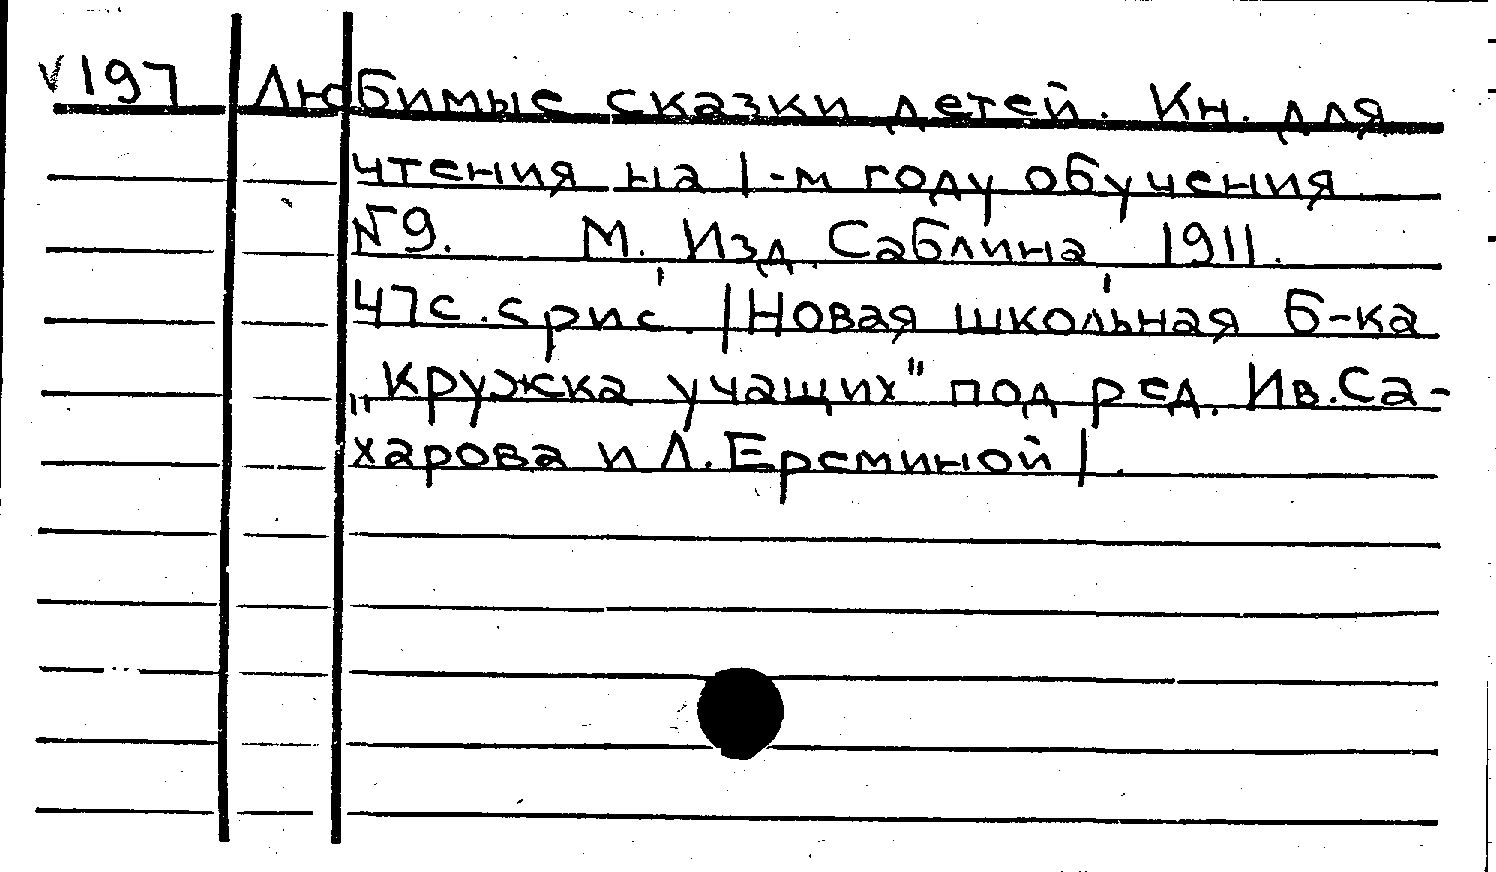 V 197 Любимые сказки детей. Кн. для
чтения на 1-м году обучения
№9. М. Изд. Саблина 1911.
47с. с рис. /Новая школьная б-ка
„Кружка учащих" под ред. Ив. Са-
харова и Л. Ереминой/.